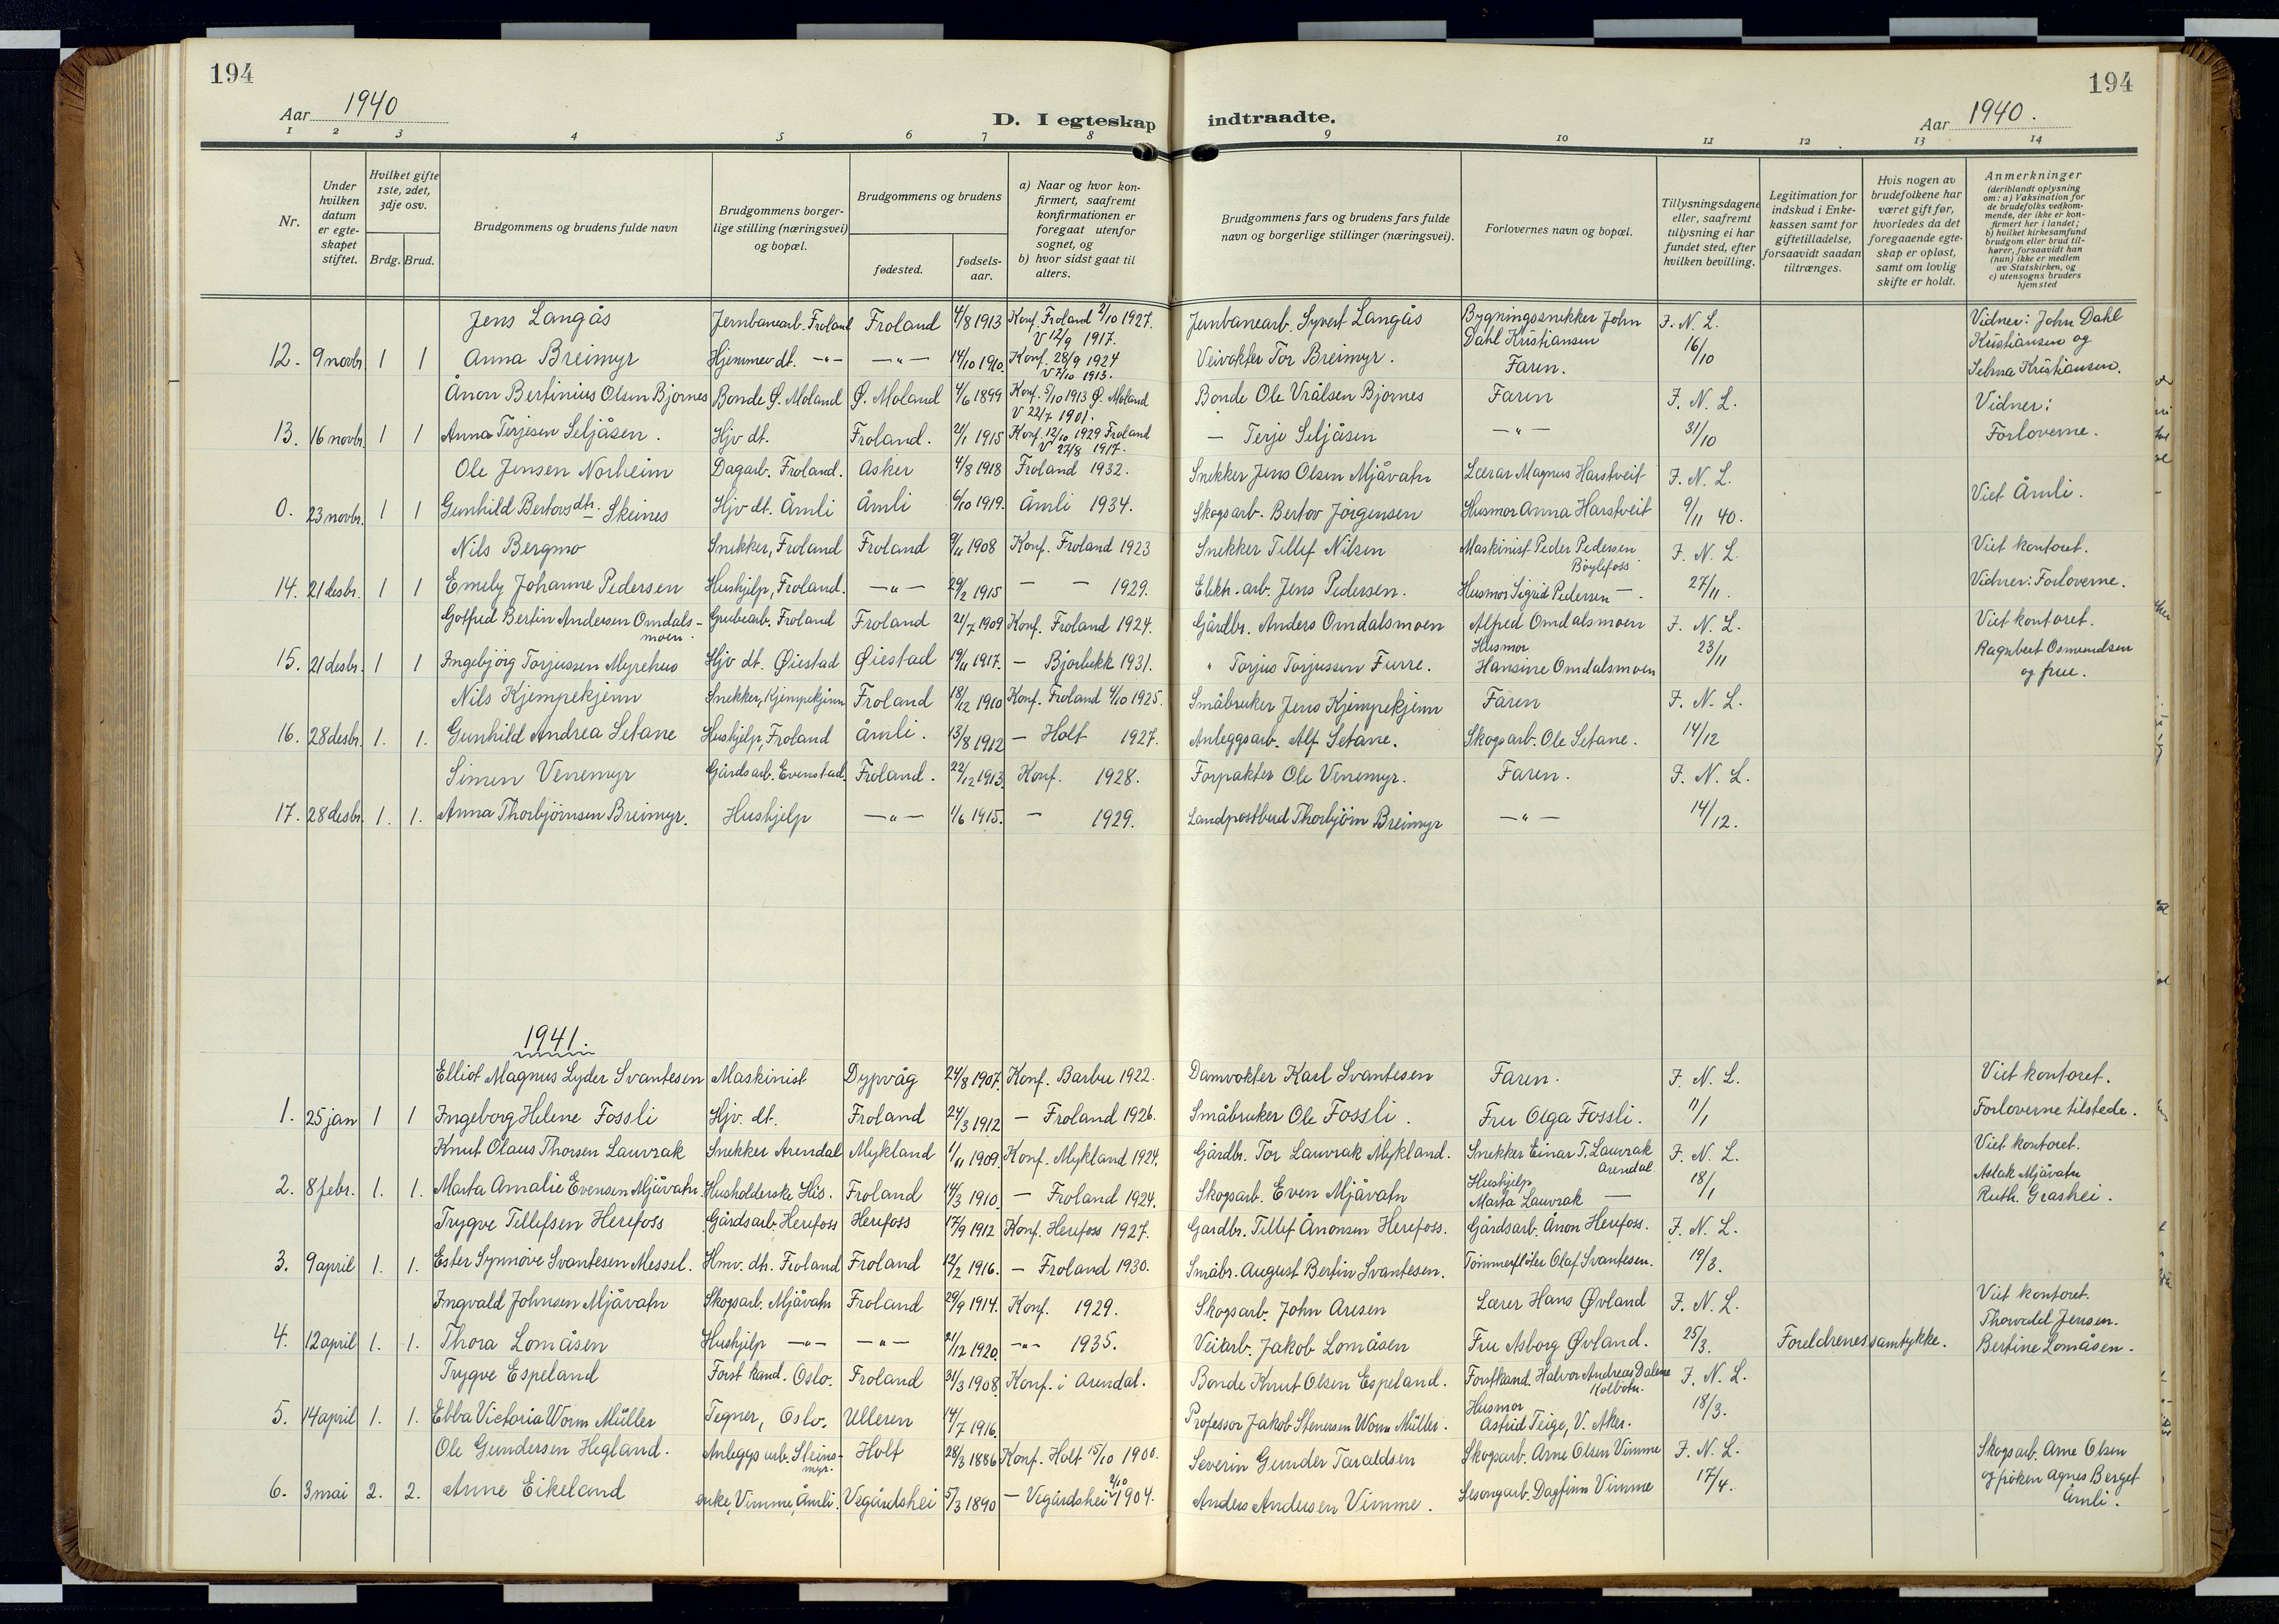 194
194
Aar 1940
D. I egteskap indtraadte.
Aar 1940.
1 2 3 4 5 6 7 8 9 10 11 12 13 14
Nr.
Under hvilken datum er egte-skapet stiftet.
Hvilket gifte 1ste, 2det, 3dje osv.
Brdg. Brud.
Brudgommens og brudens fulde navn
Brudgommens borger-lige stilling (næringsvei) og bopæl.
Brudgommens og brudens
fødested.
fødsels-aar.
a) Naar og hvor kon-firmert, saafremt konfirmationen er foregaat utenfor sognet, og
b) hvor sidst gaat til alters.
Brudgommens fars og brudens fars fulde navn og borgerlige stillinger (næringsvei).
Forlovernes navn og bopæl.
Tillysningsdagene eller, saafremt tillysning ei har fundet sted, efter hvilken bevilling.
Legitimation for indskud i Enke-kassen samt for giftetilladelse, forsaavidt saadan tiltrænges.
Hvis nogen av brudefolkene har været gift før, hvorledes da det foregaaende egte-skap er opløst, samt om lovlig skifte er holdt.
Anmerkninger (deriblandt oplysning om: a) Vaksination for de brudefolks vedkom-mende, der ikke er kon-firmert her i landet; b) hvilket kirkesamfund brudgom eller brud til-hører, forsaavidt han (hun) ikke er medlem av Statskirken, og c) utensogns bruders hjemsted
Jens Langås Jernbanearb. Froland Froland 4/8 1913 Konf. Froland 2/10 1927. V 12/9 1917. Jernbanearb. Syvert Langås Bygningssnekker John Dahl Kristiansen F. N. L. Vidner: John Dahl
12. 9 novbr. 1 1 Anna Breimyr Hjemmev dt. –"– –"– 14/10 1910. Konf. 28/9 1924 V 7/10 1913. Veivokter Tor Breimyr. Faren. 16/10 Kristiansen og Selma Kristiansen.
Ånon Bertinius Olsen Bjornes Bonde Ø. Moland Ø. Moland 4/6 1899 Konf. 5/10 1913 Ø. Moland V 22/7 1901. Bonde Ole Vrålsen Bjornes Faren F. N. L. Vidner:
13. 16 novbr. 1 1 Anna Terjesen Seljåsen. Hjv dt. Froland. 21/1 1915 Konf. 12/10 1929 Froland V 27/8 1917. – Terje Seljåsen –"– 31/10 Forloverne.
Ole Jensen Norheim Dagarb. Froland. Asker 4/8 1918 Froland 1932. Snekker Jens Olsen Mjåvatn Lærar Magnus Harstveit F. N. L.
0. 23 novbr. 1 1 Gunhild Bertovsdtr. Skeines Hjv dt. Åmli Åmli 6/10 1919. Åmli 1934. Skogsarb. Bertov Jörgensen Husmor Anna Harstveit 9/11 40. Viet Åmli.
Nils Bergmo Snekker, Froland Froland 9/11 1908 Konf. Froland 1923 Snekker Tellef Nilsen Maskinist Peder Pedersen Böylefoss F. N. L. Viet kontoret.
14. 21 desbr. 1 1 Emely Johanne Pedersen Hushjelp, Froland. –"– 29/2 1915 – – 1929. Elektr. arb. Jens Pedersen. Husmor Sigrid Pedersen –. 27/11. Vidner: Forloverne.
Gotfred Bertin Andersen Omdals-moen. Grubearb. Froland Froland 21/7 1909 Konf. Froland 1924. Gårdbr. Anders Omdalsmoen Alfred Omdalsmoen F. N. L. Viet kontoret.
15. 21 desbr. 1 1 Ingebjörg Torjussen Myrehus Hjv dt. Øiestad Øiestad 19/11 1917. – Bjorbekk 1931. " Torjus Torjussen Furre. Husmor Hansine Omdalsmoen 23/11 Ragnbert Osmundsen og frue.
Nils Kjempekjenn Snekker, Kjempekjenn Froland 18/12 1910 Konf. Froland 4/10 1925. Småbruker Jens Kjempekjenn Faren F. N. L.
16. 28 desbr. 1. 1. Gunhild Andrea Setane Hushjelp, Froland Åmli. 13/8 1912 – Holt 1927. Anleggsarb. Alf Setane. Skogsarb. Ole Setane. 14/12
Simen Venemyr Gårdsarb. Evenstad. Froland. 22/12 1913. Konf. 1928. Forpakter Ole Venemyr. Faren. F. N. L.
17. 28 desbr. 1. 1. Anna Thorbjörnsen Breimyr. Hushjelp –"– 1/6 1915. – 1929. Landpostbud Thorbjörn Breimyr –"– 14/12.
1941.
Elliot Magnus Lyder Svantesen Maskinist Dypvåg 24/8 1907. Konf. Barbu 1922. Damvokter Karl Svantesen Faren. F. N. L. Viet kontoret.
1. 25 jan 1 1 Ingeborg Helene Fossli Hjv. dt. Froland 24/3 1912 – Froland 1926. Småbruker Ole Fossli. Fru Olga Fossli. 11/1 Forloverne tilstede.
Knut Olaus Thorsen Lauvrak Snekker Arendal Mykland 1/11 1909. Konf. Mykland 1924. Gårdbr. Tor Lauvrak Mykland. Snekker Einar T. Lauvrak Arendal F. N. L. Viet kontoret.
2. 8 febr. 1. 1. Marta Amalie Evensen Mjåvatn. Husholderske His. Froland 14/3 1910. – Froland 1924. Skogsarb. Even Mjåvatn Hushjelp Marta Lauvrak – 18/1 Aslak Mjåvatn Ruth. Grashei.
Trygve Tellefsen Herefoss Gårdsarb. Herefoss Herefoss 17/9 1912 Konf. Herefoss 1927. Gardbr. Tellef Ånonsen Herefoss. Gårdsarb. Ånon Herefoss. F. N. L.
3. 9 april 1. 1. Ester Synnöve Svantesen Messel. Hmv. dtr. Froland Froland 12/2 1916. – Froland 1930. Småbr. August Bertin Svantesen. Tömmerflöter Olaf Svantesen. 19/3.
Ingvald Johnsen Mjåvatn Skogsarb. Mjåvatn Froland 29/9 1914. Konf. 1929. Skogsarb. John Aresen Lærer Hans Øvland F. N. L. Viet kontoret.
4. 12 april 1. 1. Thora Lomåsen Hushjelp –"– –"– 21/12 1920. –"– 1935. Veiarb. Jakob Lomåsen Fru Asborg Øvland. 25/3. Foreldrenes samtykke. Thorvald Jensen. Bertine Lomåsen.
Trygve Espeland Forst kand. Oslo. Froland 31/3 1908. Konf. i Arendal. Bonde Knut Olsen Espeland. Forstkand. Halvor Andreas Dalene Kolbotn. F. N. L.
5. 14 april 1. 1. Ebba Victoria Worm Müller Tegner, Oslo. Ulleren 14/7 1916. Professor Jakob Stenersen Worm Müller. Husmor Astrid Teige, V. Aker. 18/3.
Ole Gundersen Hegland. Anleggsarb. Steins-myr. Holt 28/3 1886 Konf. Holt 15/10 1900. Severin Gunder Taraldsen Skogsarb. Arne Olsen Vimme F. N. L. Skogsarb. Arne Olsen
6. 3 mai 2. 2. Anne Eikeland enke, Vimme, Åmli. Vegårdshei 5/3 1890 – Vegårdshei 2/10 1904. Anders Andersen Vimme. Sesongarb. Dagfinn Vimme 17/4. og fröken Agnes Berget Åmli.